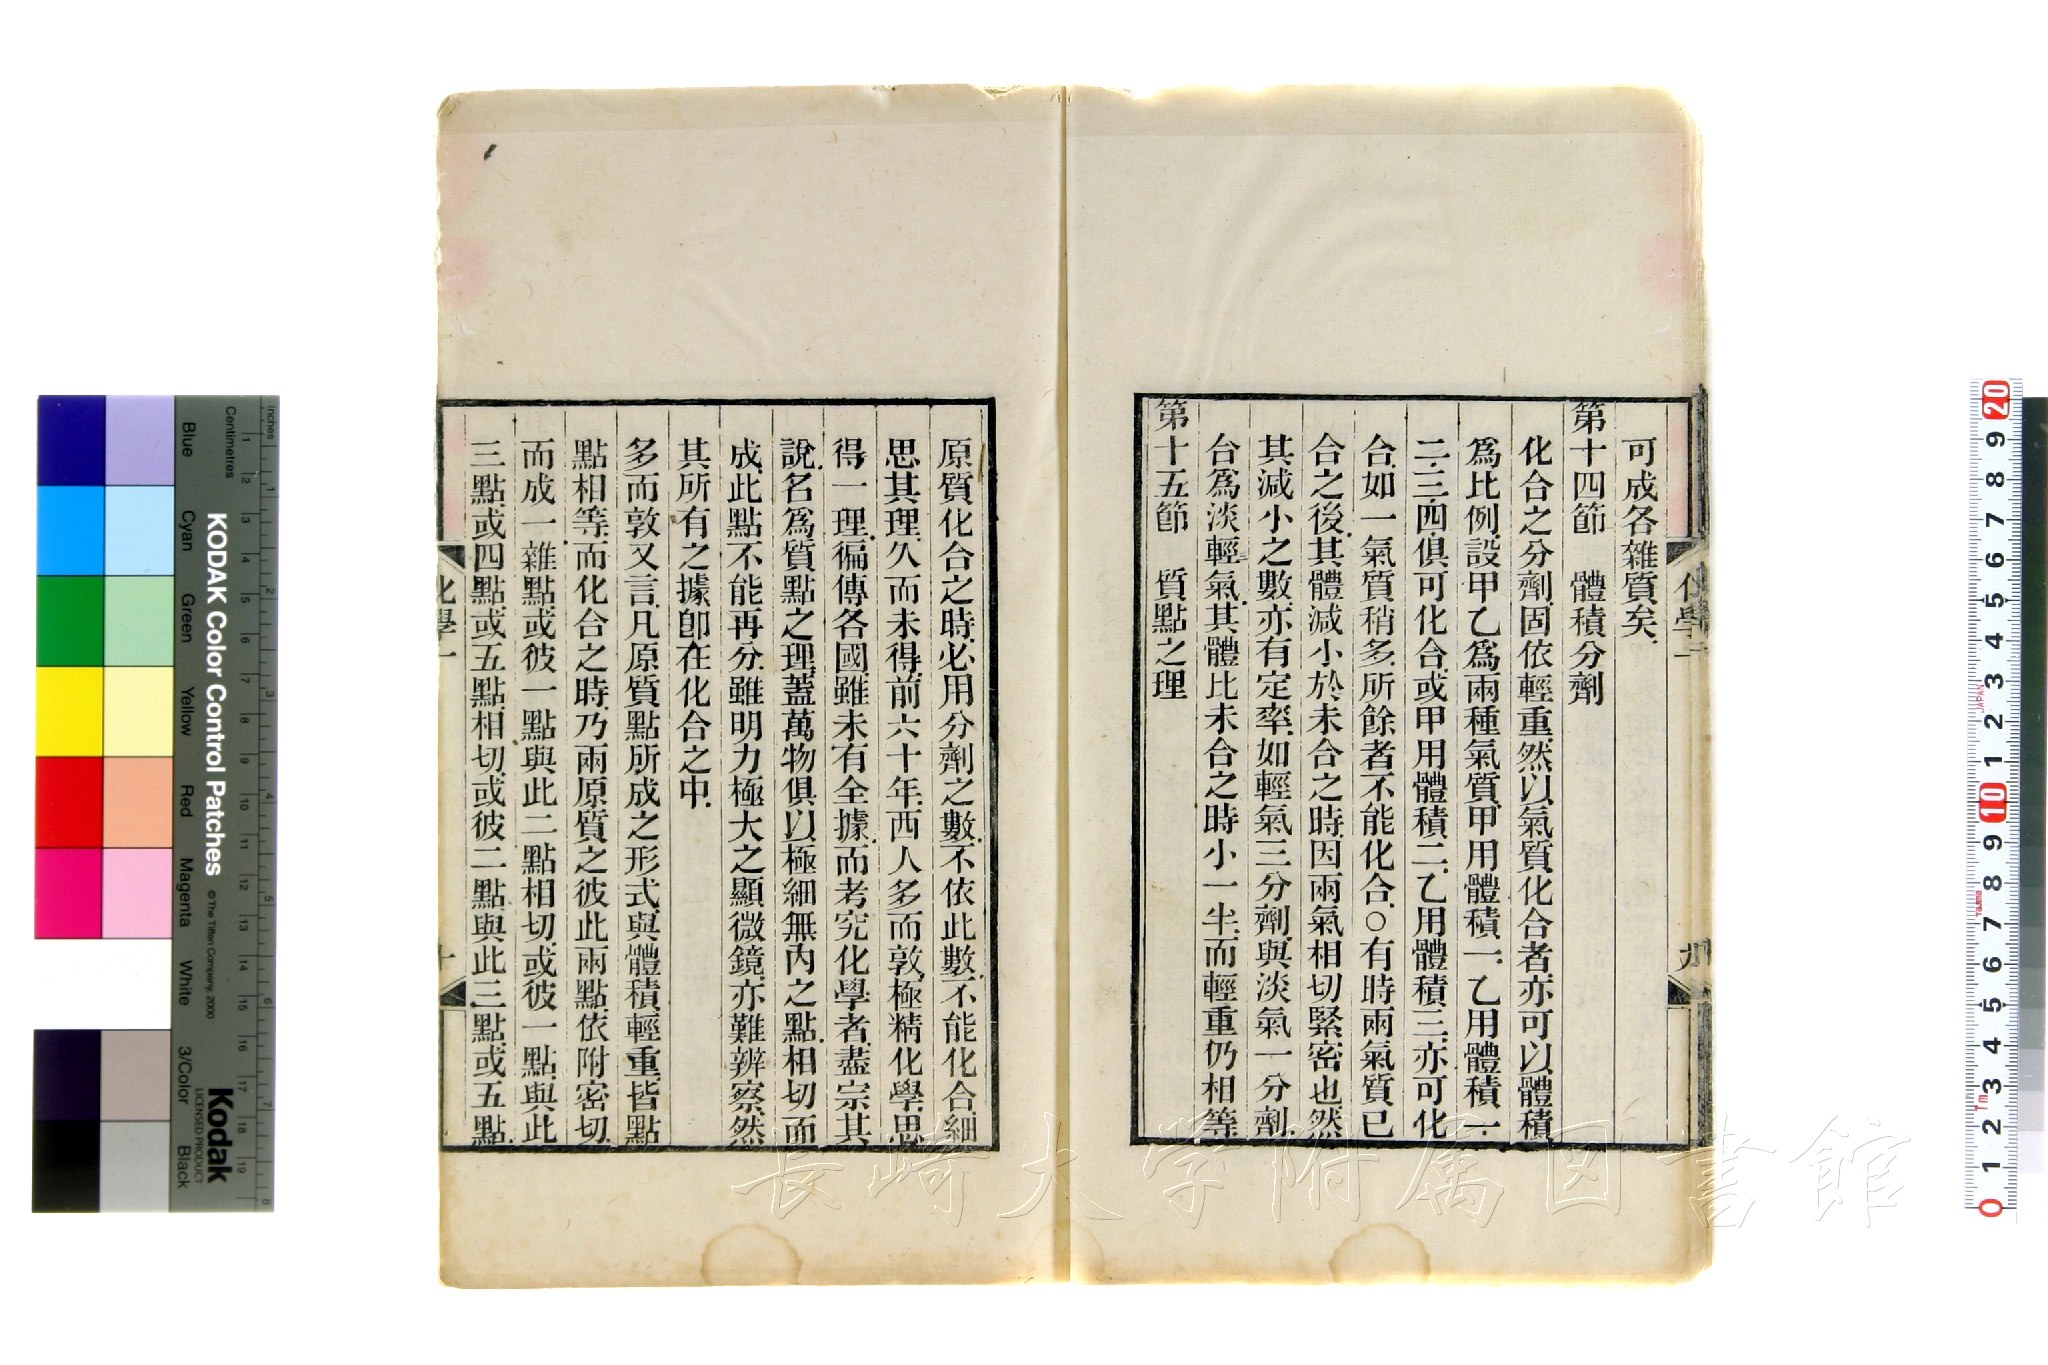 可成各雜質矣.
第十四節 體積分劑
化合之分劑.固依輕重.然以氣質化合者.亦可以體積
爲比例.設甲乙爲兩種氣質.甲用體積一.乙用體積一.
二.三.四.俱可化合.或甲用體積二.乙用體積三.亦可化
合.如一氣質稍多.所餘者不能化合.○有時兩氣質已
合之後.其體減小於未合之時.因兩氣相切緊密也.然
其減小之數.亦有定率.如輕氣三分劑.與淡氣一分劑.
合爲淡輕氣.其體比未合之時小一半.而輕重仍相等
第十五節 質點之理
化學一
九
原質化合之時.必用分劑之數.不依此數.不能化合.細
思其理.久而未得.前六十年.西人多而敦.極精化學.思
得一理.徧傳各國.雖未有全據.而考究化學者.盡宗其
說.名爲質點之理.蓋萬物俱以極細無內之點.相切而
成.此點不能再分.雖明力極大之顯微鏡.亦難辨察.然
其所有之據.卽在化合之中.
多而敦又言.凡原質點所成之形式.與體積輕重.皆點
點相等.而化合之時.乃兩原質之彼此兩點.依附密切.
而成一雜點.或彼一點與此二點相切.或彼一點.與此
三點.或四點.或五點.相切.或彼二點.與此三點.或五點.
化學一
十
KODAK Color Control Patches
© The Tiffen Company, 2000
Kodak
LICENSED PRODUCT
Inches
Centimetres
Blue
Cyan
Green
Yellow
Red
Magenta
White
3/Color
Black
1 2 3 4 5 6 7 8 9 10 11 12 13 14 15 16 17 18 19
1 2 3 4 5 6 7 8
0 1 2 3 4 5 6 7 8 9 10 1 2 3 4 5 6 7 8 9 20
JAPAN
Tajima
長崎大学附属図書館